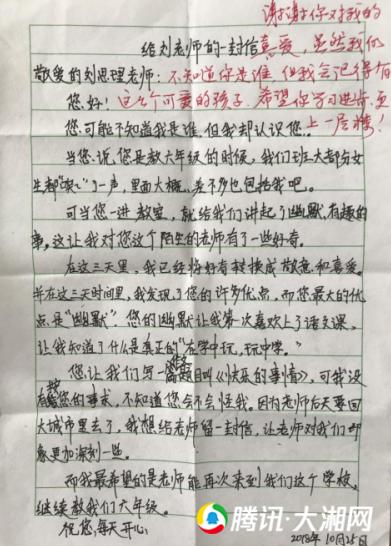 谢谢你对我的
给刘老师的一封信 喜爱，虽然我们
敬爱的刘思理老师：不知道你是谁，但我会记得有
您好！这么个可爱的孩子，希望你学习进步，更
您可能不知道我是谁，但我却认识您。上一层楼！
当您说，您是教六年级的时候，我们班大部分女
生都“哎”了一声，里面大概、差不多也包括我吧。
可当您一进教室，就给我们讲起了幽默、有趣的
事，这让我对您这个陌生的老师有了一些好奇。
在这三天里，我已经将好奇转换成敬意和喜爱。
并在这三天时间里，我发现了您的许多优点，而您最大的优
点是“幽默”。您的幽默让我第一次喜欢上了语文课，
让我知道了什么是真正的“在学中玩，玩中学。”
您让我们写一篇题目叫《快乐的事情》，可我没
您的事式，不知道您会不会怪我。因为老师后天要回
大城市里去了，我想给老师留一封信，让老师对我们印
象更加深刻一些。
而我最希望的是老师能再次来到我们这个学校，
继续教我们六年级。
祝您，每天开心。
2018年10月25日
腾讯·大湘网